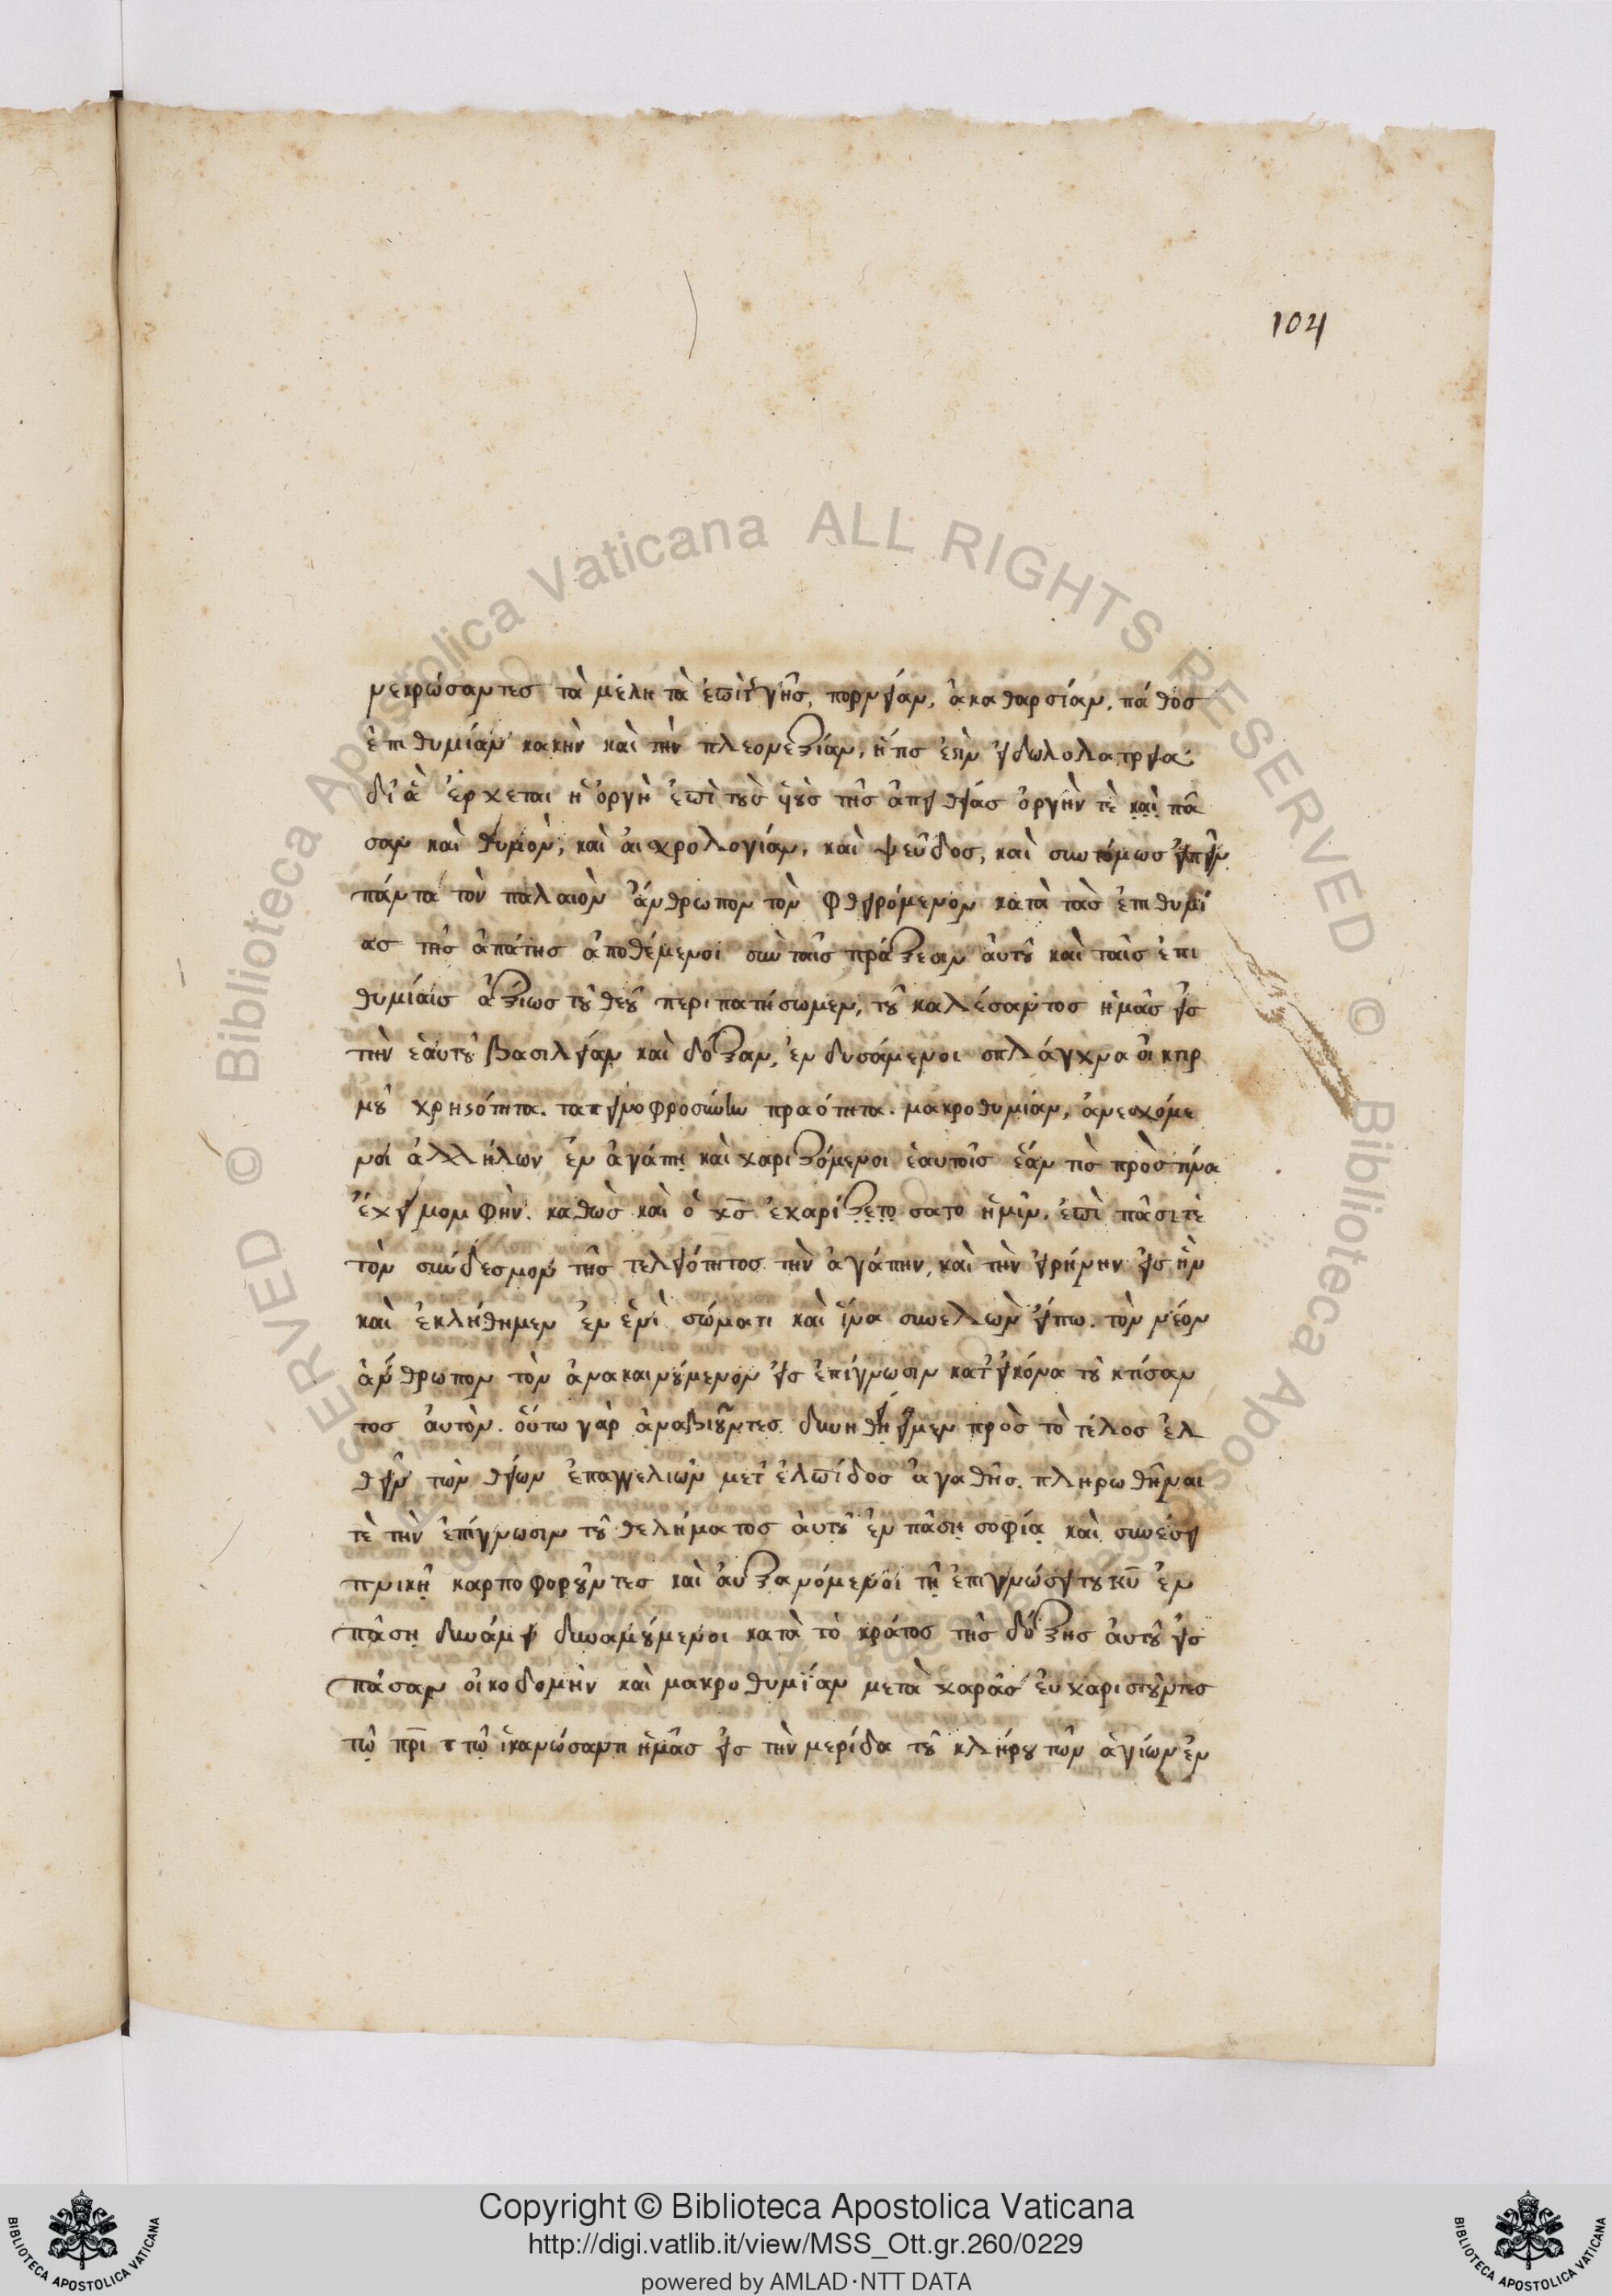 104
νεκρώσαντες τὰ μέλη τὰ ἐπὶ τ γῆς, πορνείαν, ἀκαθαρσίαν, πάθος
ἐπιθυμίαν κακὴν καὶ τὴν πλεονεξίαν, ἥτις ἐστὶν εἰδωλολατρεία
δι' ἃ ἔρχεται ἡ ὀργὴ ἐπὶ τοὺς υἱοὺς τῆς ἀπειθείας ὀργήν τὲ καὶ πᾶ
σαν καὶ θυμὸν, καὶ αἰσχρολογίαν, καὶ ψεῦδος, καὶ συντόμως εἰπεῖν
πάντα τὸν παλαιὸν ἄνθρωπον τὸν φθειρόμενον κατὰ τὰς ἐπιθυμί
ας τῆς ἀπάτης ἀποθέμενοι σὺν ταῖς πράξεσιν ἀυτοῦ καὶ ταῖς ἐπι
θυμίαις ἀξίως τοῦ θεοῦ περιπατήσωμεν, τοῦ καλέσαντος ἡμᾶς εἰς
τὴν ἑαυτοῦ βασιλείαν καὶ δόξαν, ἐνδυσάμενοι σπλάγχνα οἰκτιρ
μοῦ χρηστότητα. ταπεινοφροσύνην πραότητα. μακροθυμίαν, ἀνεχόμε
νοι ἀλλήλων ἐν ἀγάπῃ καὶ χαριζόμενοι ἑαυτοῖς ἐάν τὶς πρὸς τίνα
ἔχει μομφὴν. καθὼς καὶ ὁ χς ἐχαρίζετο σατο ἡμῖν. ἐπὶ πᾶσι τὲ
τὸν σύνδεσμον τῆς τελειότητος τὴν ἀγάπην, καὶ τὴν εἰρήνην εἰς ἣν
καὶ ἐκλήθημεν ἐν ἑνὶ σώματι καὶ ἵνα συνελὼν εἴπω. τὸν νέον
ἄνθρωπον τὸν ἀνακαινούμενον εἰς ἐπίγνωσιν κατ' εἰκόνα τοῦ κτίσαν
τος ἀυτὸν. οὕτω γὰρ ἀναβιοῦντες δυνηθείημεν πρὸς τὸ τέλος ἐλ
θεῖν τῶν θείων ἐπαγγελιῶν μετ' ἐλπίδος ἀγαθῆς. πληρωθῆναι
τὲ τὴν ἐπίγνωσιν τοῦ θελήματος ἀυτοῦ ἐν πάσῃ σοφίᾳ καὶ συνέσει
πνικῇ καρποφοροῦντες καὶ ἀυξανόμενοι τῇ ἐπιγνώσει τοῦ κυ ἐν
πάσῃ δυνάμει δυναμούμενοι κατὰ τὸ κράτος τῆς δόξης ἀυτοῦ εἰς
πᾶσαν οἰκοδομὴν καὶ μακροθυμίαν μετὰ χαρᾶς ἐυχαριστοῦντες
τῷ πρι τ τῷ ἱκανώσαντι ἡμᾶς εἰς τὴν μερίδα τοῦ κλήρου τῶν ἁγίων ἐν
Copyright © Biblioteca Apostolica Vaticana
http://digi.vatlib.it/view/MSS_Ott.gr.260/0229
powered by AMLAD·NTT DATA